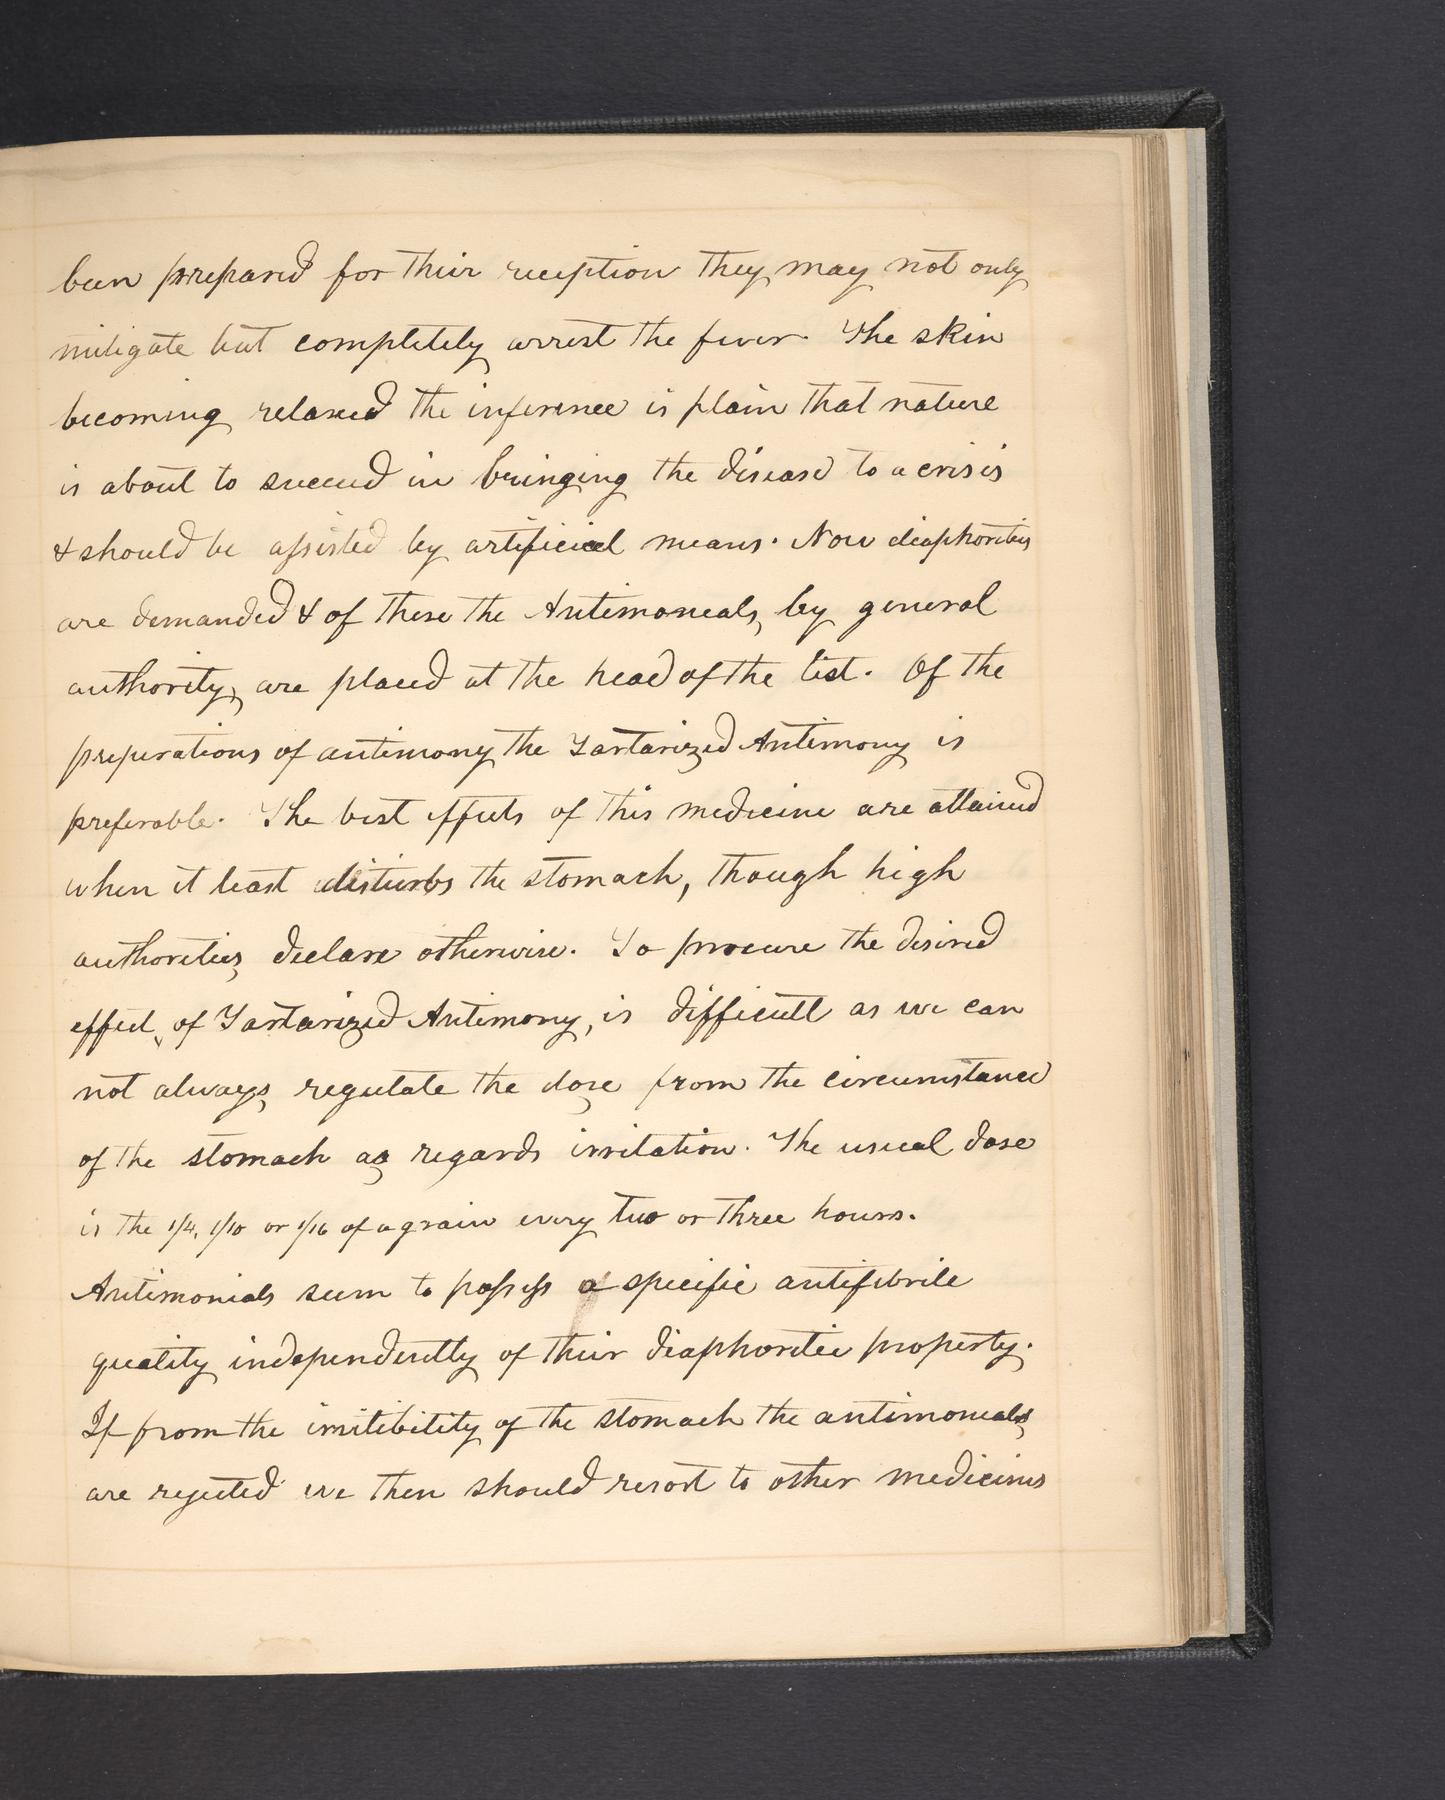 been prepared for their reception they may not only
mitigate but completely arrest the fever. The skin
becoming relaxed the inference is plain that nature
is about to succeed in bringing the disease to a crisis
& should be assisted by artificial means. Now diaphoretics
are demanded & of these the Antimoneals, by general
authority, are placed at the head of the list. Of the
preparations of antimony the Tartarized Antimony is
preferable. The best effects of this medicine are attained
when it least disturbs the stomach, though high
authorities declare otherwise. To procure the desired
effect, of Tartarized Antimony, is difficult as we can
not always regulate the doze from the circumstance
of the stomach as regards irritation. The usual dose
is the 1/4, 1/10 or 1/16 of a grain every two or three hours.
Antimonials seem to possess a specific antifebrile
quality independently of their diaphoretic property.
If from the irritibility of the stomach the antimonials
are rejected we then should resort to other medicines